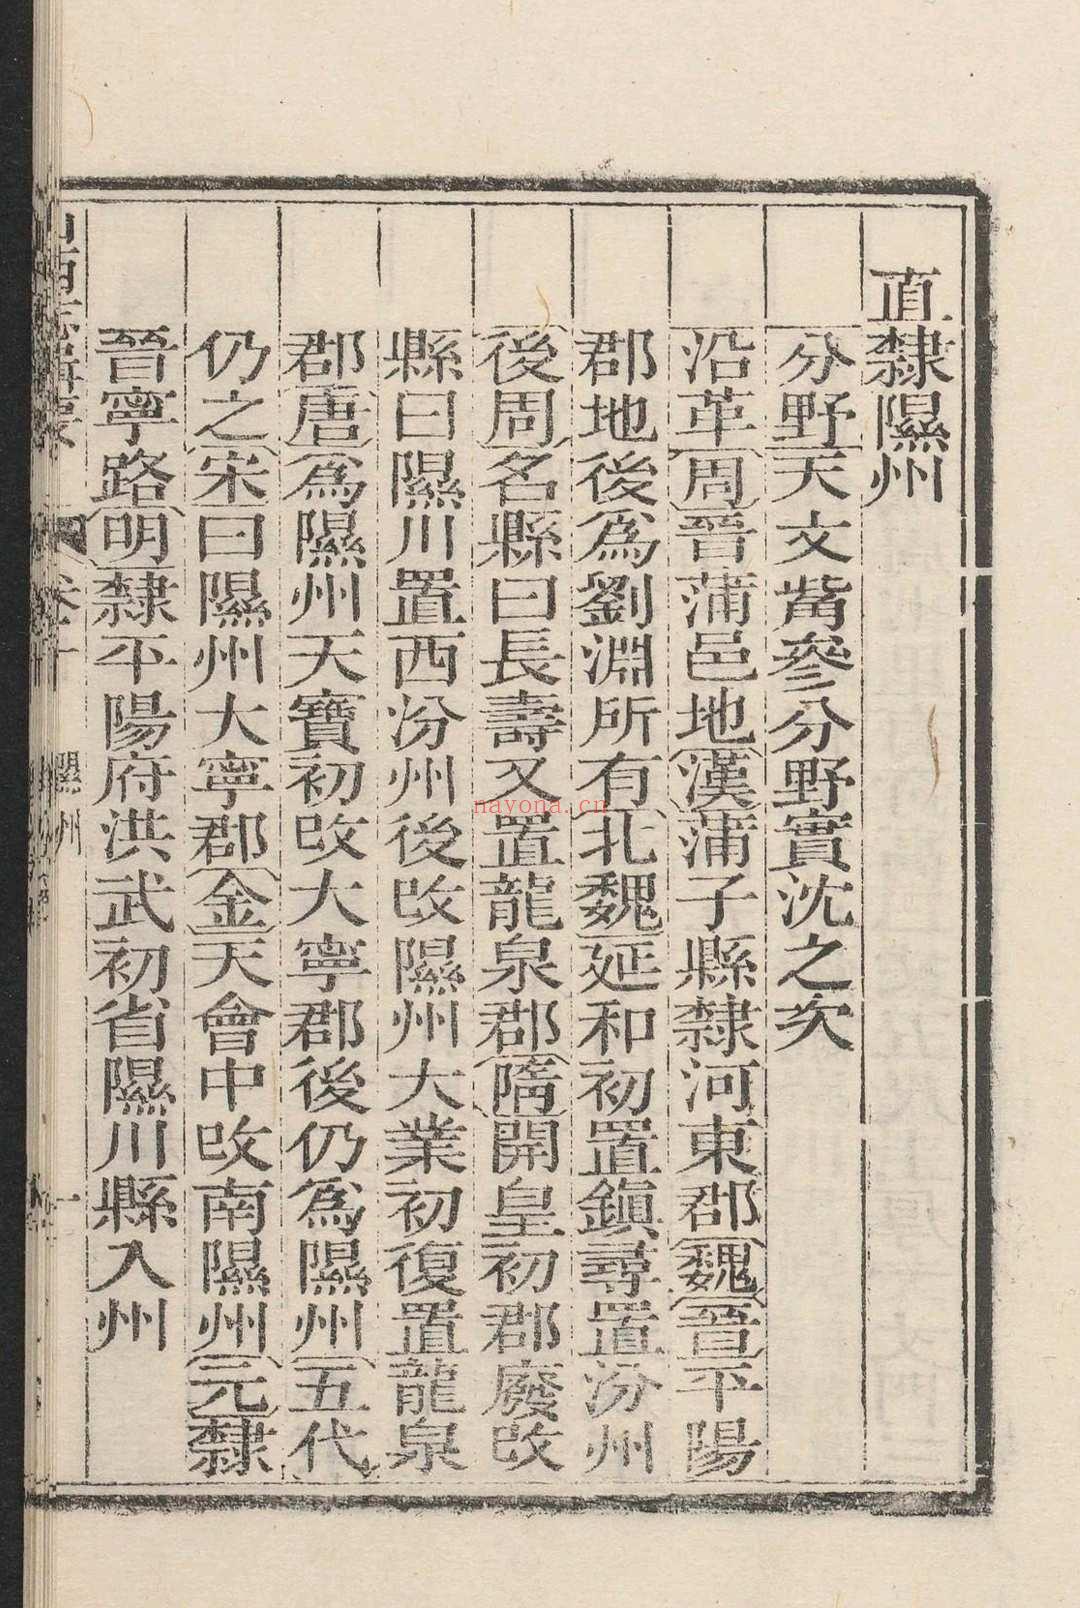 直隸隰州
分野天文觜參分野實沈之次
沿革周晉蒲邑地漢蒲子縣隸河東郡魏晉平陽
郡地後爲劉淵所有北魏延和初置鎭尋置汾州
後周名縣曰長壽又置龍泉郡隋開皇初郡廢改
縣曰隰川置西汾州後改隰州大業初復置龍泉
郡唐爲隰州天寶初改大寧郡後仍爲隰州五代
仍之宋曰隰州大寧郡金天會中改南隰州元隸
晉寧路明隸平陽府洪武初省隰川縣入州
山西志輯要 卷十 隰州 一
nayona.cn